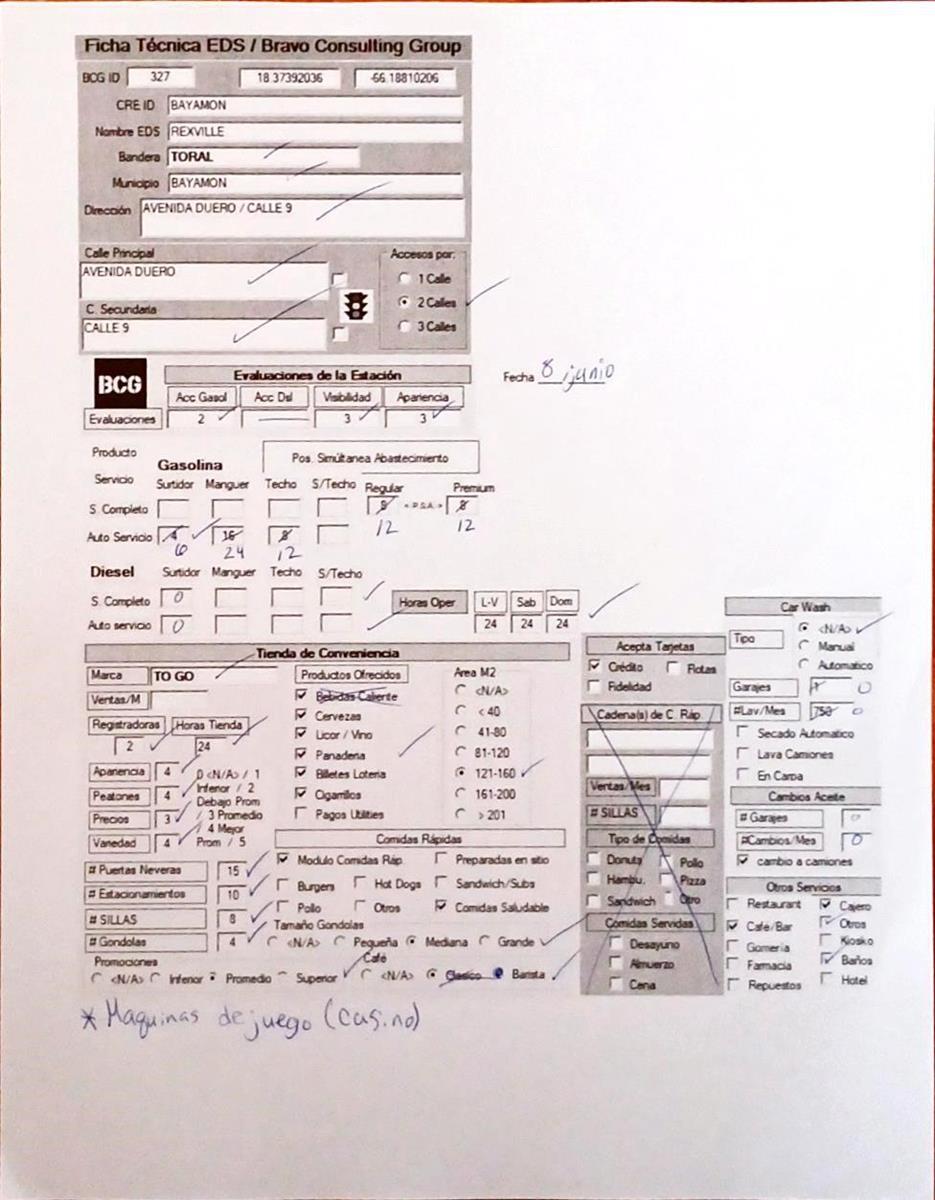 Ficha Técnica EDS / Bravo Consulting Group
BCG ID 327 18.37392036 -66.18810206
CRE ID BAYAMON
Nombre EDS REXVILLE
Bandera TORAL
Municipio BAYAMON
Dirección AVENIDA DUERO / CALLE 9
Calle Principal
AVENIDA DUERO
C. Secundaria
CALLE 9
Accesos por:
1 Calle
2 Calles
3 Calles
Fecha 8 junio
BCG
Evaluaciones de la Estación
Acc Gasol Acc Dsl Visibilidad Apariencia
Evaluaciones 2 3 3
Producto Gasolina Pos. Simúltanea Abastecimiento
Servicio Surtidor Manguer Techo S/Techo Regular Premium
S. Completo 8 < P.S.A. > 8
12 12
Auto Servicio 4 16 8
6 24 12
Diesel Surtidor Manguer Techo S/Techo
S. Completo 0
Auto servicio 0
Horas Oper L-V Sab Dom
24 24 24
Tienda de Conveniencia
Marca TO GO
Ventas/M
Registradoras Horas Tienda
2 24
Apariencia 4
Peatones 4
Precios 3
Variedad 4
0 <N/A> / 1
Inferior / 2
Debajo Prom
/ 3 Promedio
/ 4 Mejor
Prom / 5
# Puertas Neveras 15
# Estacionamientos 10
# SILLAS 8
# Gondolas 4
Productos Ofrecidos
Bebidas Caliente
Cervezas
Licor / Vino
Panaderia
Billetes Loteria
Cigarrillos
Pagos Utilities
Area M2
<N/A>
< 40
41-80
81-120
121-160
161-200
> 201
Comidas Rápidas
Modulo Comidas Ráp Preparadas en sitio
Burgers Hot Dogs Sandwich/Subs
Pollo Otros Comidas Saludable
Tamaño Gondolas
<N/A> Pequeña Mediana Grande
Promociones
<N/A> Inferior Promedio Superior
Café
<N/A> Clasico Barista
Acepta Tarjetas
Crédito Flotas
Fidelidad
Cadena(s) de C. Ráp.
Ventas/Mes
# SILLAS
Tipo de Comidas
Donuts Pollo
Hambu. Pizza
Sandwich Otro
Comidas Servidas
Desayuno
Almuerzo
Cena
Car Wash
Tipo <N/A>
Manual
Automatico
Garajes 1 0
#Lav/Mes 750 0
Secado Automatico
Lava Camiones
En Carpa
Cambios Aceite
# Garajes 0
#Cambios/Mes 0
cambio a camiones
Otros Servicios
Restaurant Cajero
Café/Bar Otros
Gomeria Kiosko
Farmacia Baños
Repuestos Hotel
* Maquinas de juego (casino)